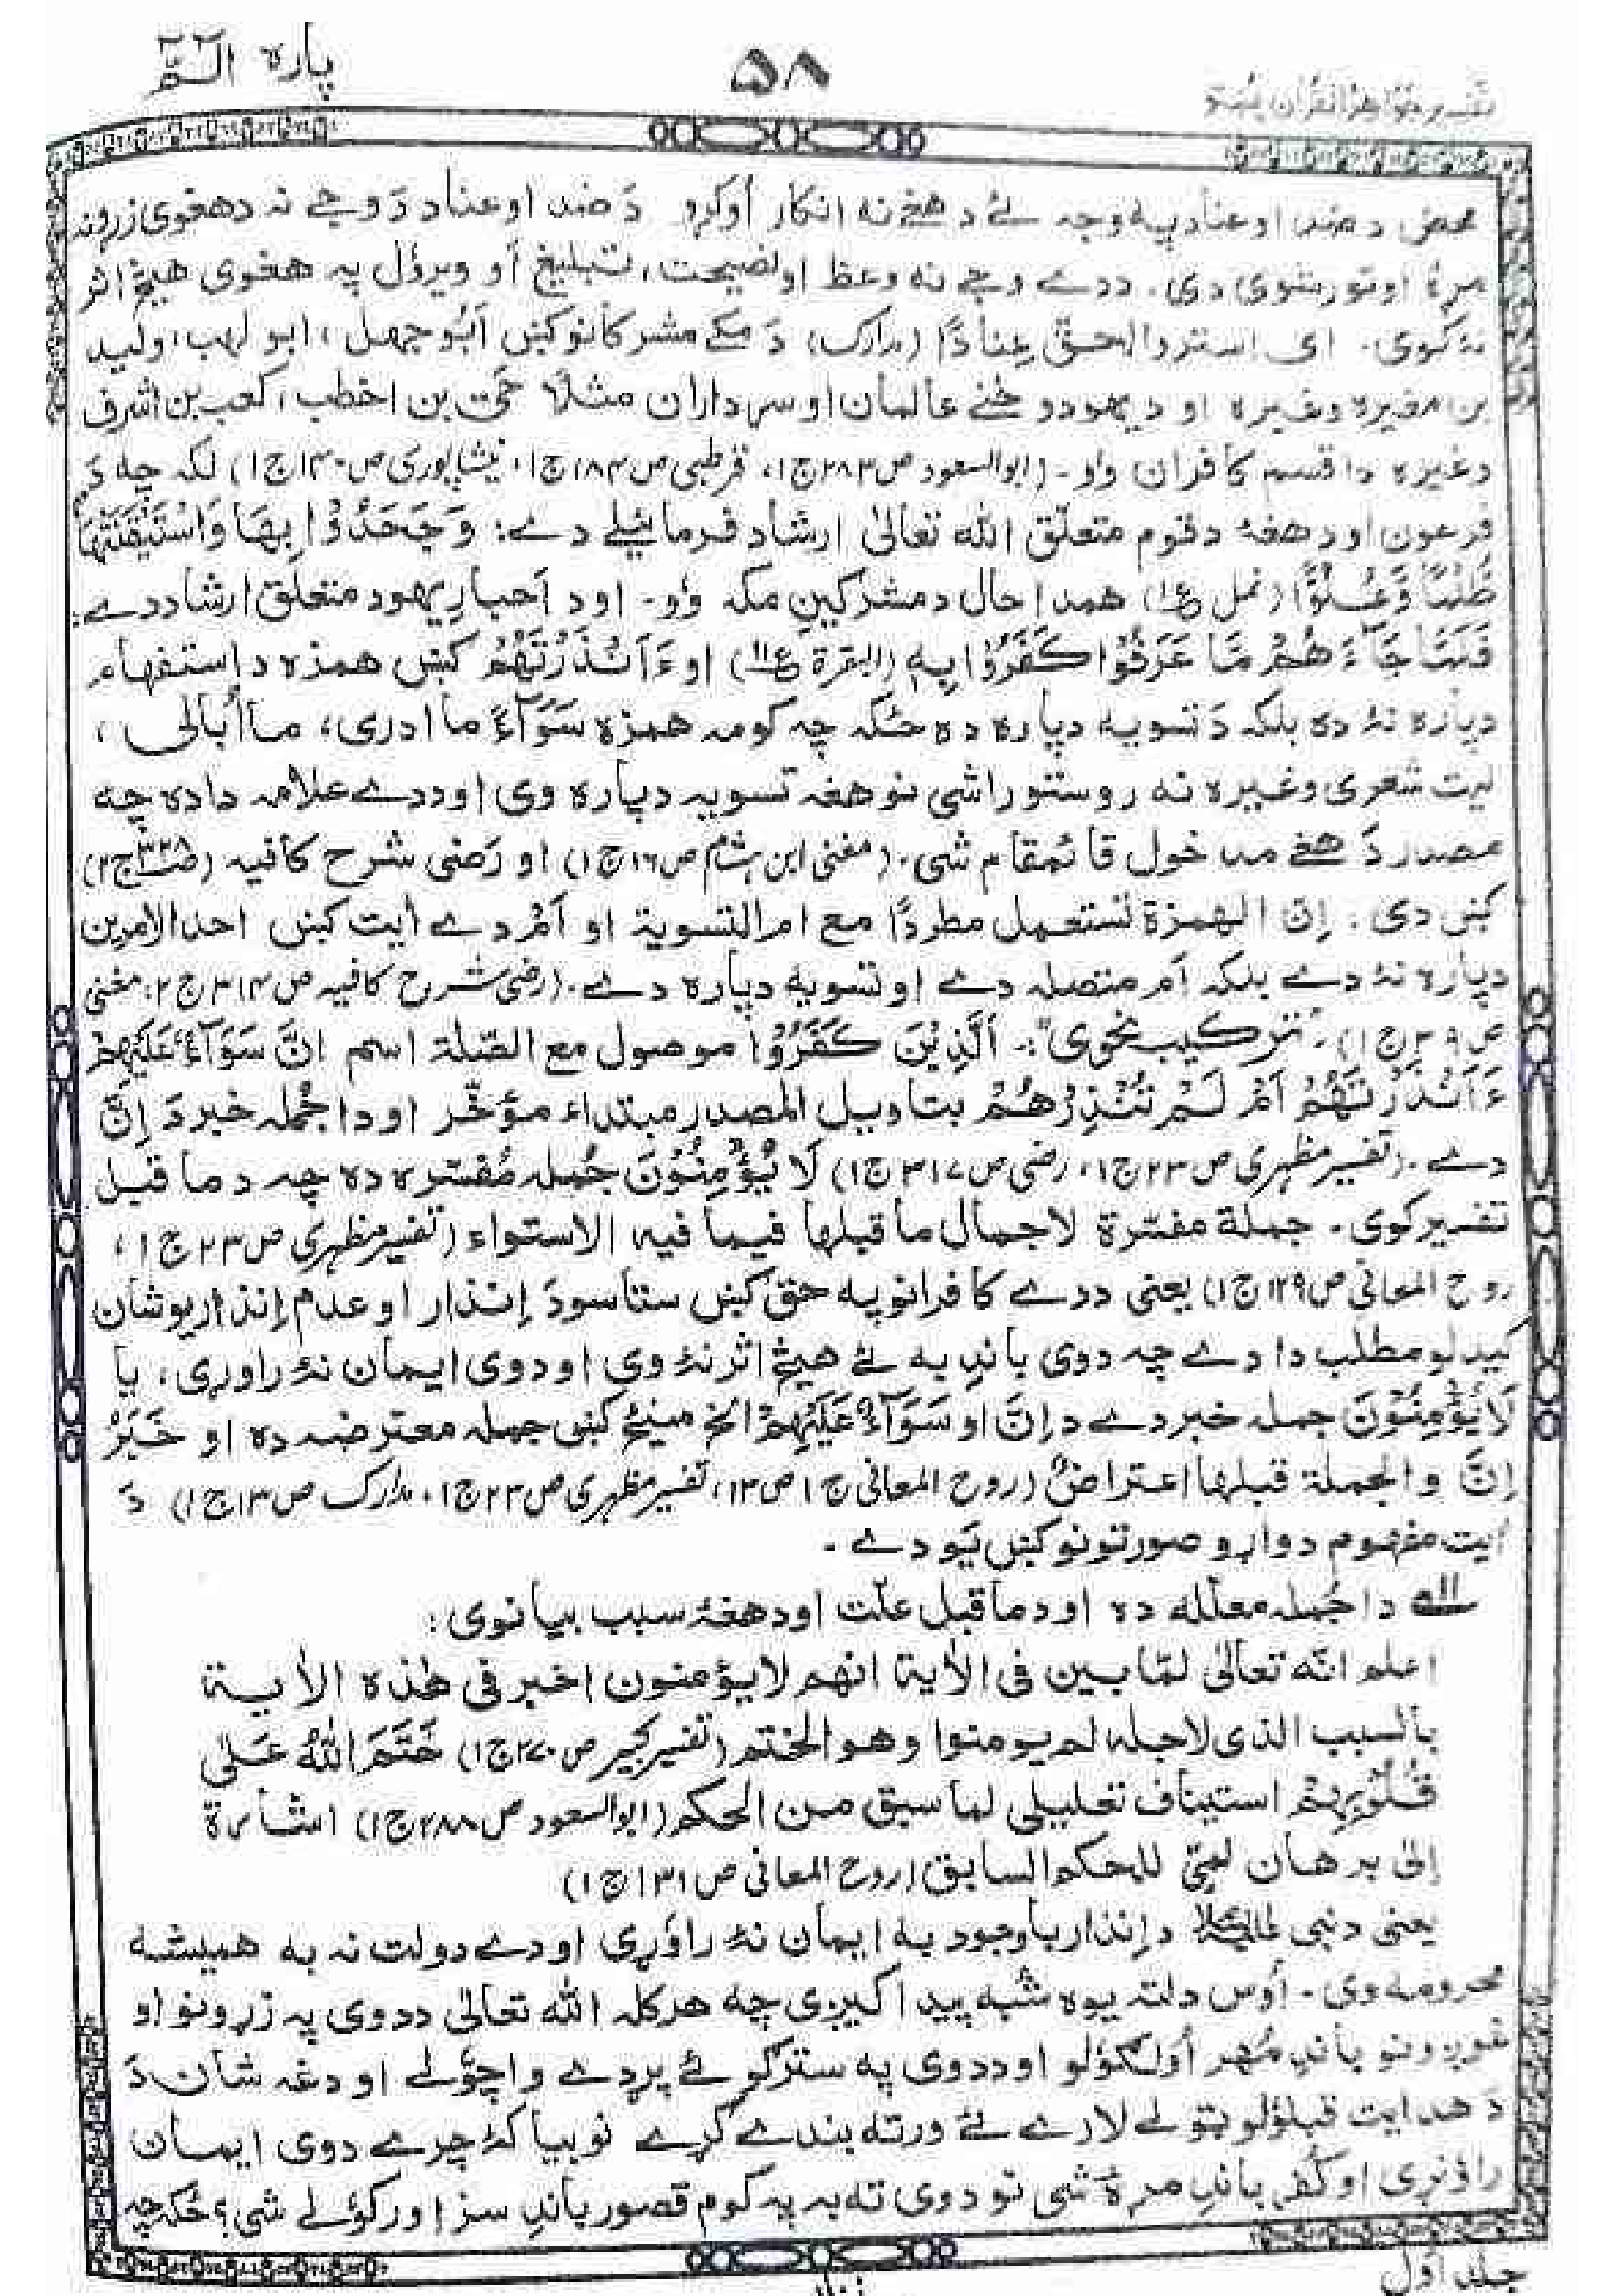 پاره الٓـمّٓ
۵۸
تفسیر جواهر القرآن پښتو
محض د ضد او عناد په وجه ئے د هغے نه انکار اوکړو دَ ضد او عناد دَ وجے نه د هغوی زړونه
مړۀ او تور شوی دی۔ ددے وجے نه وعظ او نصیحت، تبلیغ أو ویرؤل په هغوی هیڅ اثر
نۀ کوی۔ ای استردوا الحقّ عِنادًا (مدارک) دَ مکے مشرکانو کښ اَبُو جهل، ابو لهب، ولید
بن مغیره وغیره او د یهودو ځنے عالمان او سرداران مثلًا حَیّ بن اخطب، کعب بن اشرف
وغیره دا قسم کافران وٶ۔ (ابوالسعود ص ۲۸۳ ج ۱، قرطبی ص ۱۸۴ ج ۱، نیشاپوری ص ۱۴۰ ج ۱) لکه چه دَ
فرعون او د هغۀ د قوم متعلّق الله تعالیٰ ارشاد فرمائیلے دے: وَجَحَدُوْا بِهَا وَاسْتَيْقَنَتْهَا
ظُلْمًا وَّعُلُوًّا (نمل ع۱) همدا حال د مشرکینِ مکه وٶ۔ او د اَحبارِ یهود متعلّق ارشاد دے:
فَلَمَّا جَآءَهُمْ مَّا عَرَفُوْا كَفَرُوْا بِهٖ (البقرة ع۱۱) او ءَاَنْذَرْتَهُمْ کښ همزه د استفهام
دپاره نۀ ده بلکه دَ تسویه دپاره ده ځکه چه کومه همزه سَوَآءٌ ما ادری، ما اُبالی،
لیت شعری وغیره نه روستو راشی نو هغه تسویه دپاره وی او ددے علامه دا ده چه
مصدر دَ هغے مدخول قائمقام شی۔ (مغنی ابن هشام ص ۱۶ ج ۱) او رَضی شرح کافیه (ص ۳۲۵ ج ۲)
کښ دی۔ إنّ الهمزة تستعمل مطردًا مع ام التسویة او اَمْ دے أیت کښ احد الامرین
دپاره نۀ دے بلکه اَم متصله دے او تسویه دپاره دے۔ (رضی شرح کافیه ص ۳۱۴ ج ۲، مغنی
ص ۳۹ ج ۱)۔ "ترکیب نحوی"۔ اَلَّذِيْنَ كَفَرُوْا موصول مع الصّلة اسم انَّ سَوَآءٌ عَلَيْهِمْ
ءَاَنْذَرْتَهُمْ اَمْ لَمْ تُنْذِرْهُمْ بتاویل المصدر مبتداء مؤخّر او دا جُمله خبر دَ إنَّ
دے۔ (تفسیر مظهری ص ۲۳ ج ۱، رضی ص ۳۱۷ ج ۱) لَا يُؤْمِنُوْنَ جُمله مُفسّره ده چه د ما قبل
تفسیر کوی۔ جملة مفسّرة لاجمال ما قبلها فیما فیه الاستواء (تفسیر مظهری ص ۲۳ ج ۱،
روح المعانی ص ۱۲۹ ج ۱) یعنی ددے کافرانو په حق کښ ستاسو دَ إنذار او عدم إنذار یو شان
کیدلو مطلب دا دے چه دوی باندِ به ئے هیڅ اثر نۀ وی او دوی ایمان نۀ راوړی، یا
لَا يُؤْمِنُوْنَ جمله خبر دے د إنَّ او سَوَآءٌ عَلَيْهِمْ الخ مینځ کښ جمله معترضه ده او خَبَرُ
إنَّ والجملة قبلها اعتراضٌ (روح المعانی ج ۱ ص ۱۳، تفسیر مظهری ص ۲۳ ج ۱، مدارک ص ۱۳ ج ۱) دَ
أیت مفهوم دواړو صورتونو کښ یَو دے۔
دا جُمله معلّله ده او د ما قبل علّت او د هغۀ سبب بیانوی:
اعلم انّه تعالیٰ لمّا بین فی الأیة انهم لا یؤمنون اخبر فی هٰذه الأیة
بالسبب الذی لاجله لم یومنوا وهو الختم (تفسیر کبیر ص ۲۷۰ ج ۱) خَتَمَ اللّٰهُ عَلٰى
قُلُوْبِهِمْ استیناف تعلیلی لما سبق من الحکم (ابوالسعود ص ۲۸۸ ج ۱) اشارة
إلیٰ برهان لمّی للحکم السابق (روح المعانی ص ۱۳۱ ج ۱)
یعنی د نبی علیه السلام د إنذار باوجود به ایمان نۀ راؤړی او دے دولت نه به همیشه
محرومه وی۔ أوس دلته یوه شُبه پیدا کیږی چه هرکله الله تعالیٰ ددوی په زړونو او
غوږونو باندِ مُهر اُولګؤلو او ددوی په سترګو ئے پردے واچولے او دغه شان دَ
دَ هدایت قبلؤلو ټولے لارے ئے ورته بندے کړے نو بیا کۀ چرے دوی ایمان
راؤنړی او کُفر باندِ مړۀ شی نو دوی ته به په کوم قصور باندِ سزا ورکؤلے شی؟ ځکه چه
جلد اوّل